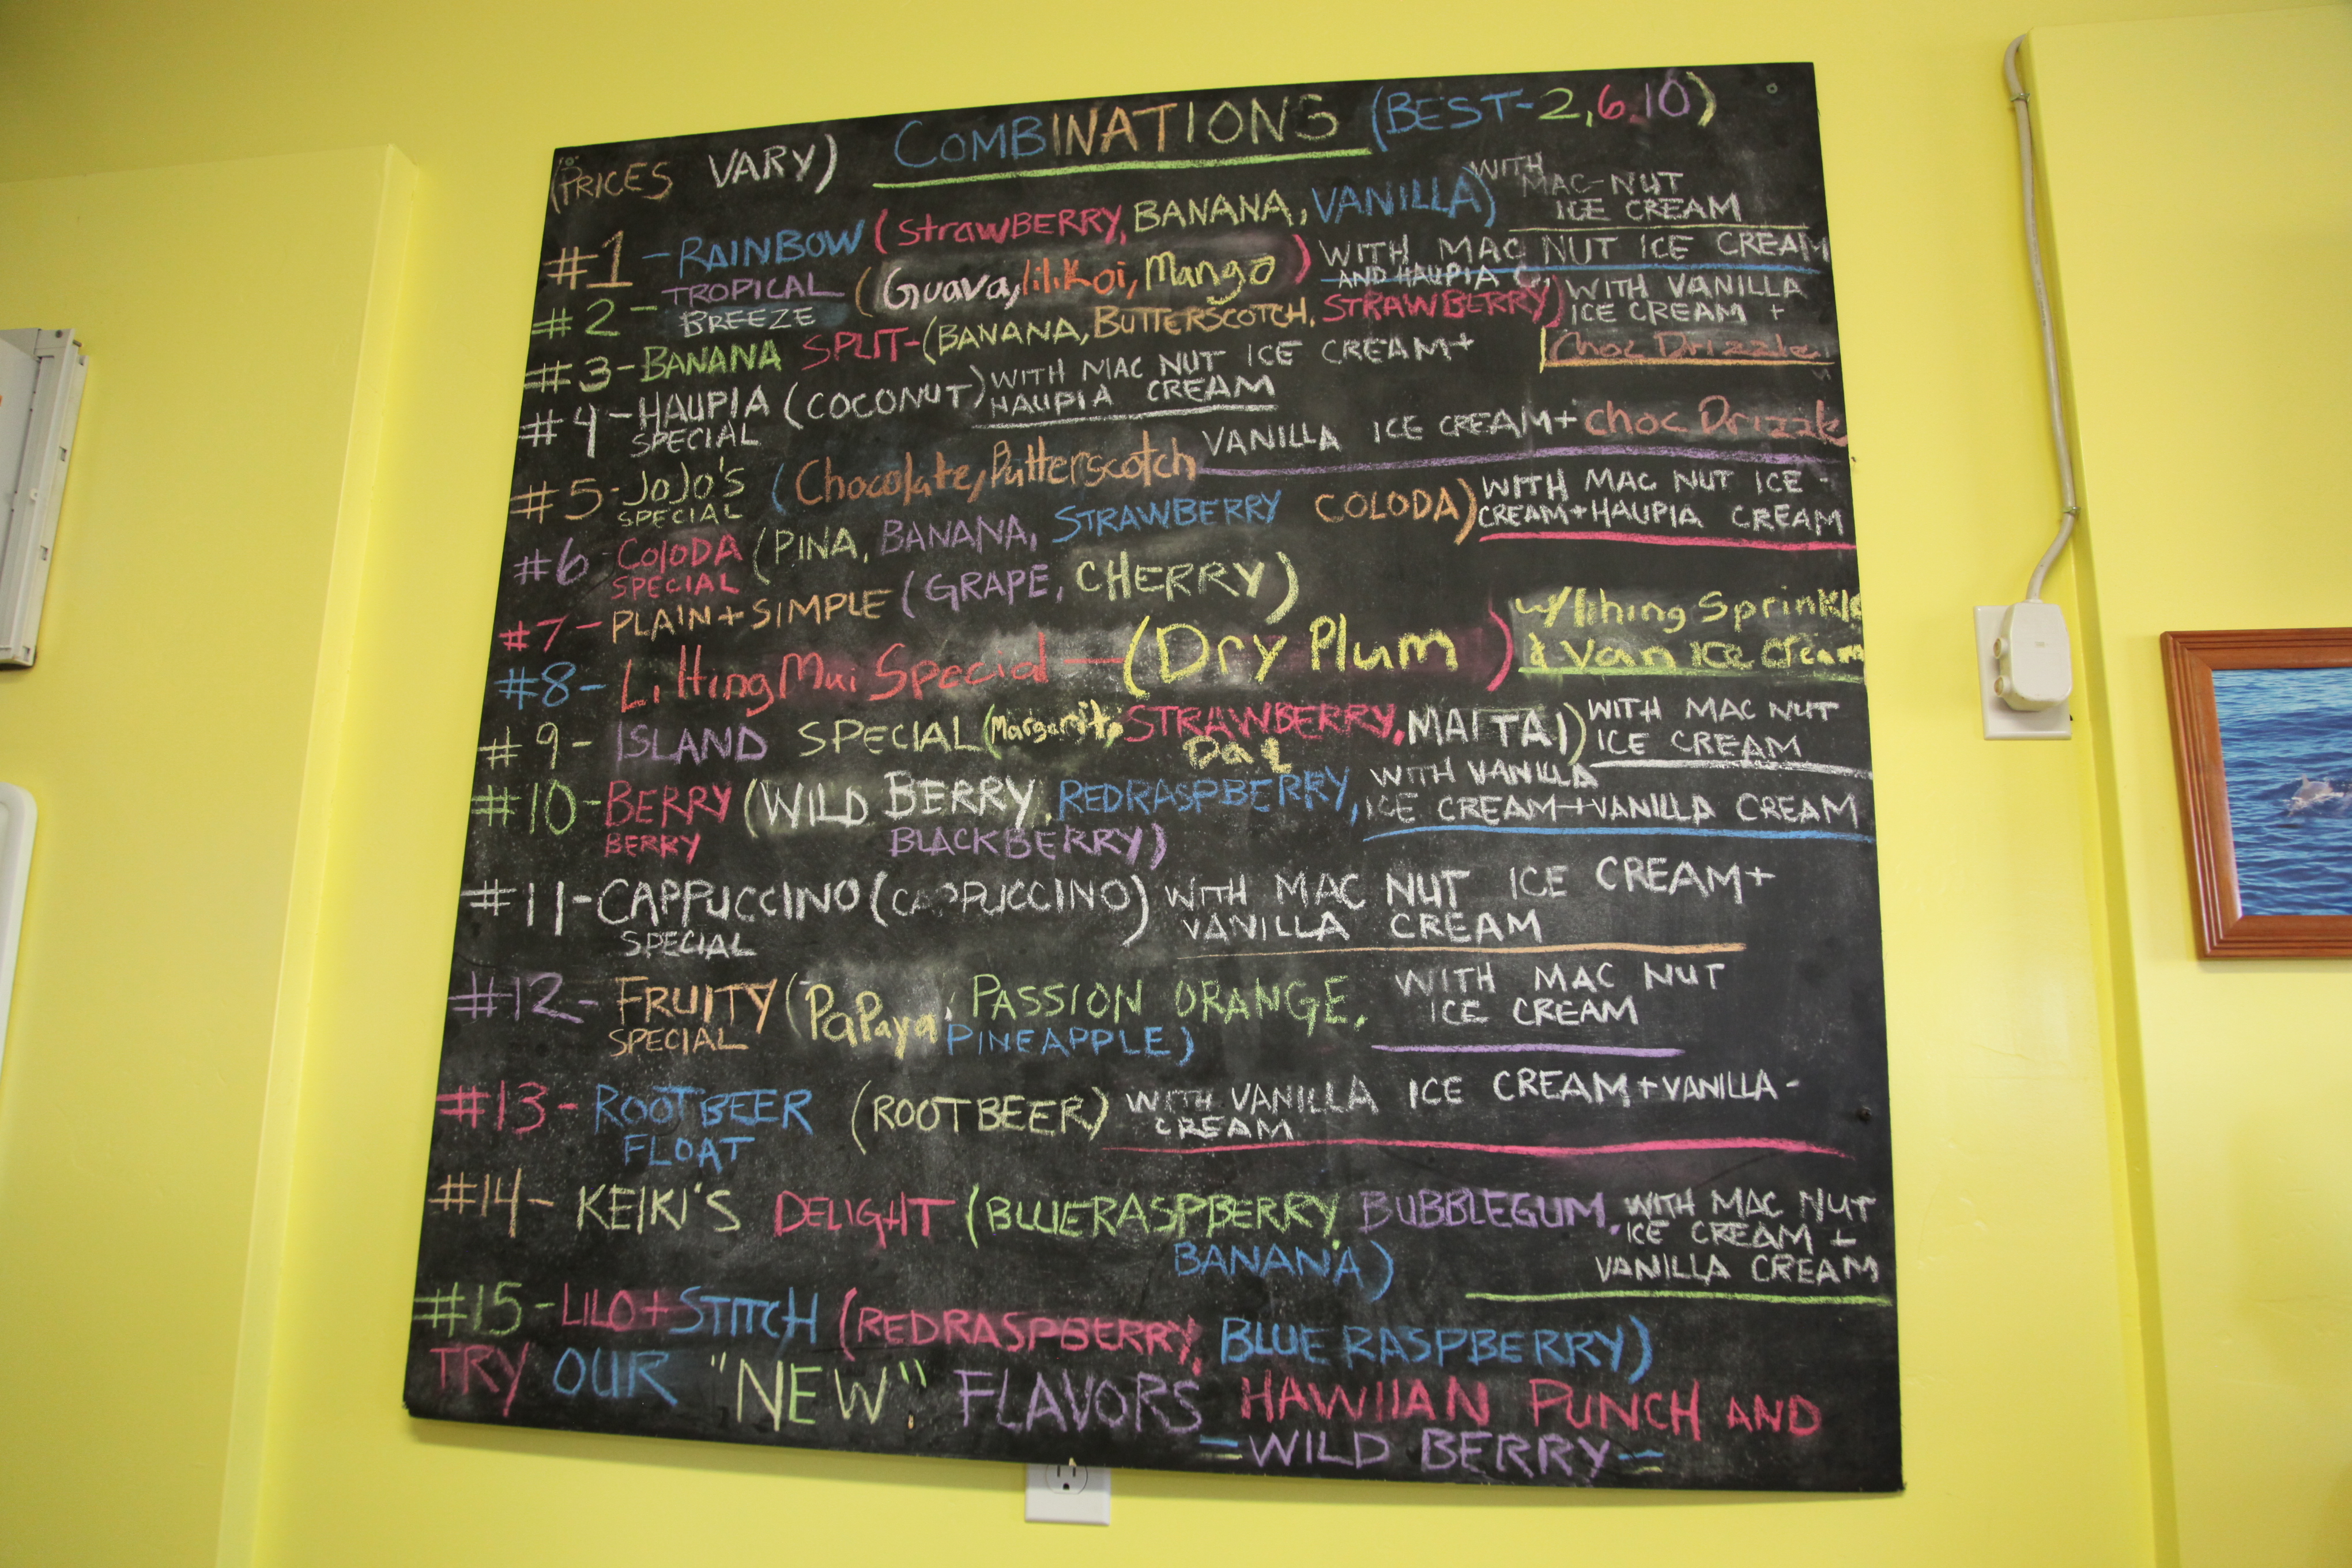 (PRICES VARY) COMBINATIONS (BEST-2,6,10)
#1-RAINBOW (StrawBERRY, BANANA, VANILLA) WITH MAC-NUT ICE CREAM
#2-TROPICAL BREEZE (Guava, liliKoi, Mango) WITH MAC NUT ICE CREAM AND HAUPIA C.
#3-BANANA SPLIT-(BANANA, BUTTERSCOTCH, STRAWBERRY) WITH VANILLA ICE CREAM + Choc Drizzle
#4-HAUPIA SPECIAL (COCONUT) WITH MAC NUT ICE CREAM+ HAUPIA CREAM
#5-JOJO'S SPECIAL (Chocolate, Butterscotch VANILLA ICE CREAM+ Choc Drizzle
#6-COLODA SPECIAL (PINA, BANANA, STRAWBERRY COLODA) WITH MAC NUT ICE-CREAM+HAUPIA CREAM
#7-PLAIN+SIMPLE (GRAPE, CHERRY)
#8-Li Hing Mui Special-(Dry Plum) w/lihing Sprinkle & Van Ice Cream
#9-ISLAND SPECIAL (Margarita, STRAWBERRY Daq, MAI TAI) WITH MAC NUT ICE CREAM
#10-BERRY BERRY (WILD BERRY, REDRASPBERRY, BLACKBERRY) WITH VANILLA ICE CREAM+VANILLA CREAM
#11-CAPPUCCINO SPECIAL (CAPPUCCINO) WITH MAC NUT ICE CREAM+ VANILLA CREAM
#12-FRUITY SPECIAL (PaPaya, PASSION ORANGE, PINEAPPLE) WITH MAC NUT ICE CREAM
#13-ROOTBEER FLOAT (ROOTBEER) WITH VANILLA ICE CREAM+VANILLA-CREAM
#14-KEIKI'S DELIGHT (BLUERASPBERRY, BUBBLEGUM, BANANA) WITH MAC NUT ICE CREAM + VANILLA CREAM
#15-LILO+STITCH (REDRASPBERRY, BLUE RASPBERRY)
TRY OUR "NEW" FLAVORS HAWIIAN PUNCH AND
=WILD BERRY=